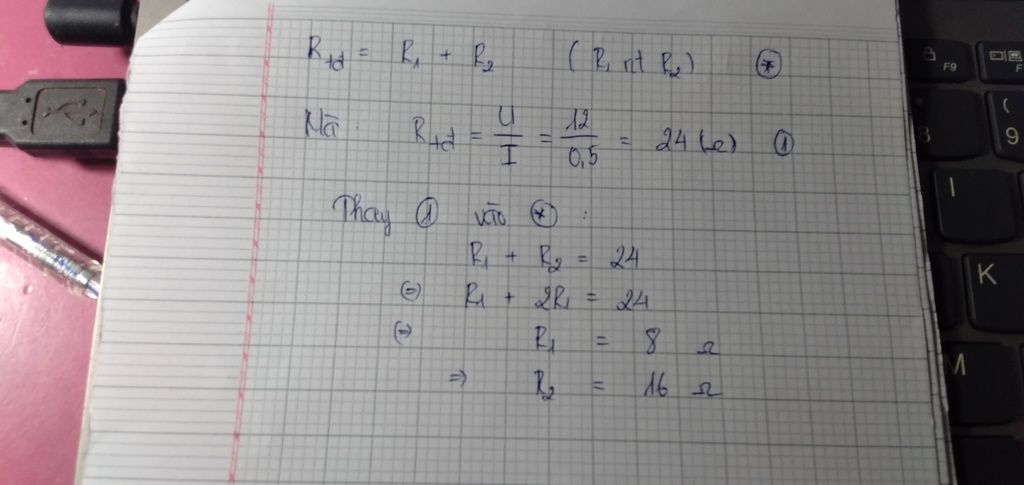 Rtđ = R1 + R2 ( R1 nt R2 ) (*)
Mà : Rtđ = U/I = 12/0,5 = 24 (Ω) (1)
Thay (1) vào (*) :
R1 + R2 = 24
(=) R1 + 2R1 = 24
(=) R1 = 8 Ω
=> R2 = 16 Ω
F9
F
8
( 9
I
K
M